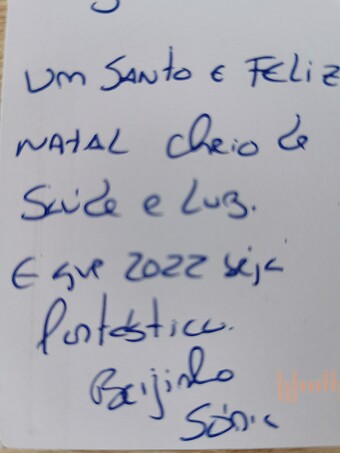 Um Santo e Feliz
Natal cheio de
Saúde e Luz.
E que 2022 seja
fantástico.
Beijinho
Sónia